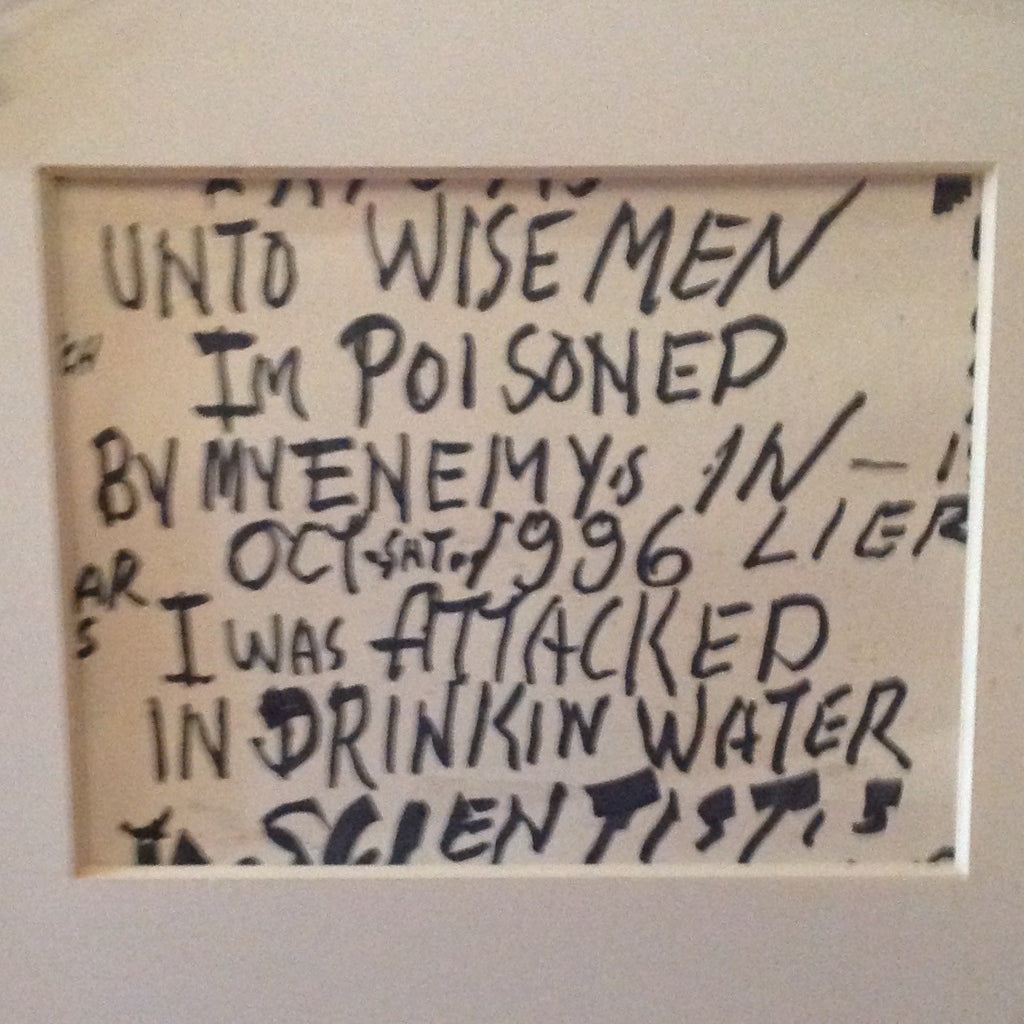 UNTO WISE MEN
IM POISONED
BY MY ENEMYS IN —
OCT. SAT. 1996 LIER
AR
S
I WAS ATTACKED
IN DRINKIN WATER
SCIENTISTS